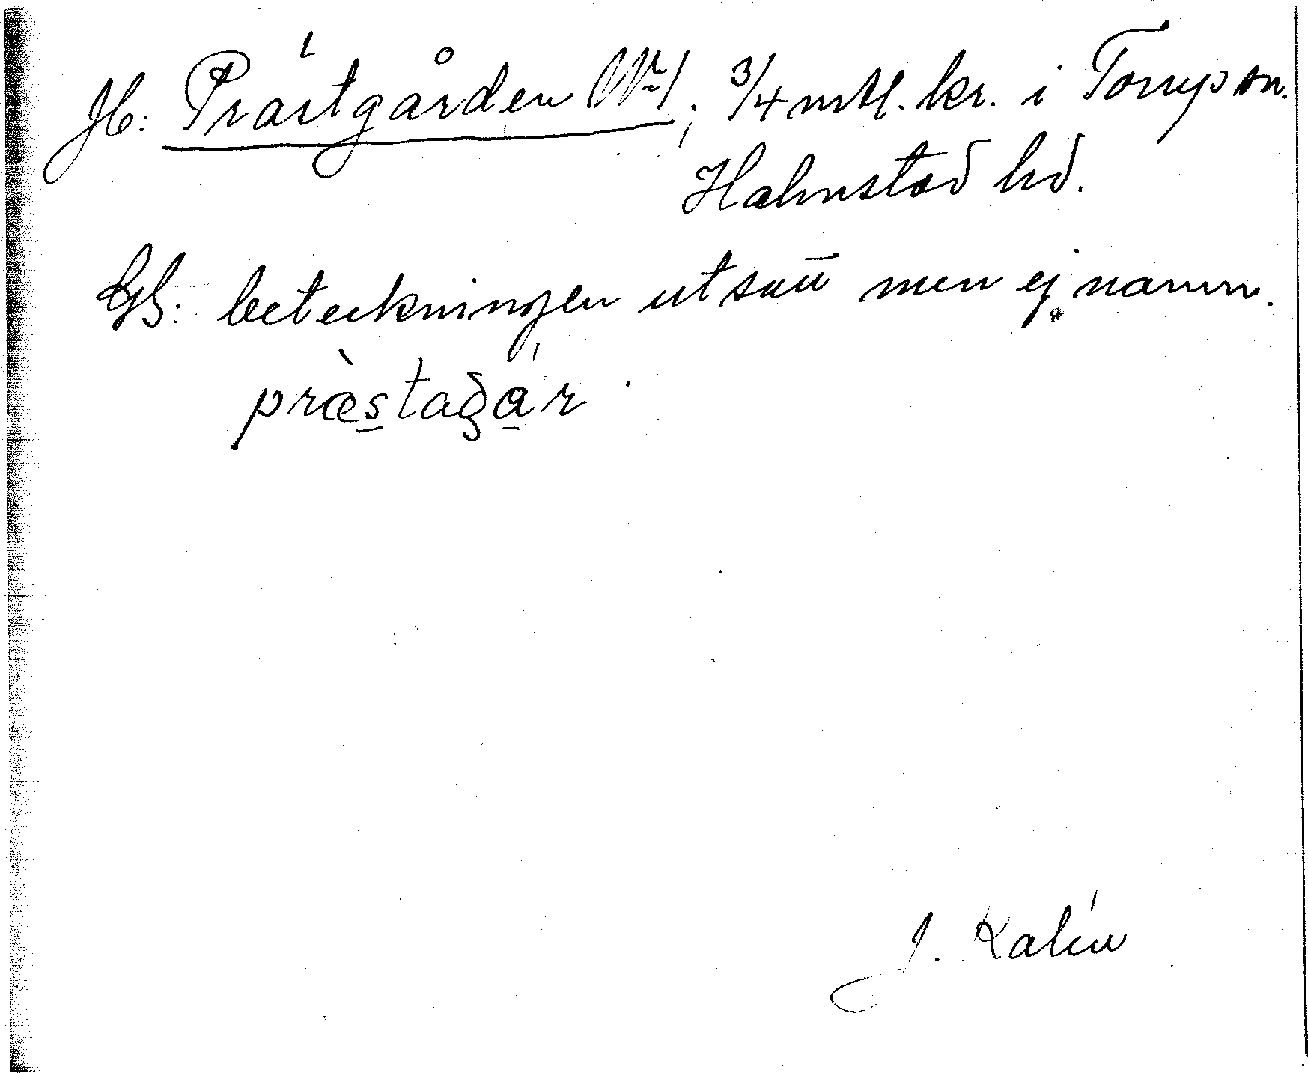 Jb: Prästgården No 1; 3/4 mtl. kr. i Torups sn.
Halmstad hd.
GS: beteckningen utsatt men ej namn.
præstagár
J. Kalén